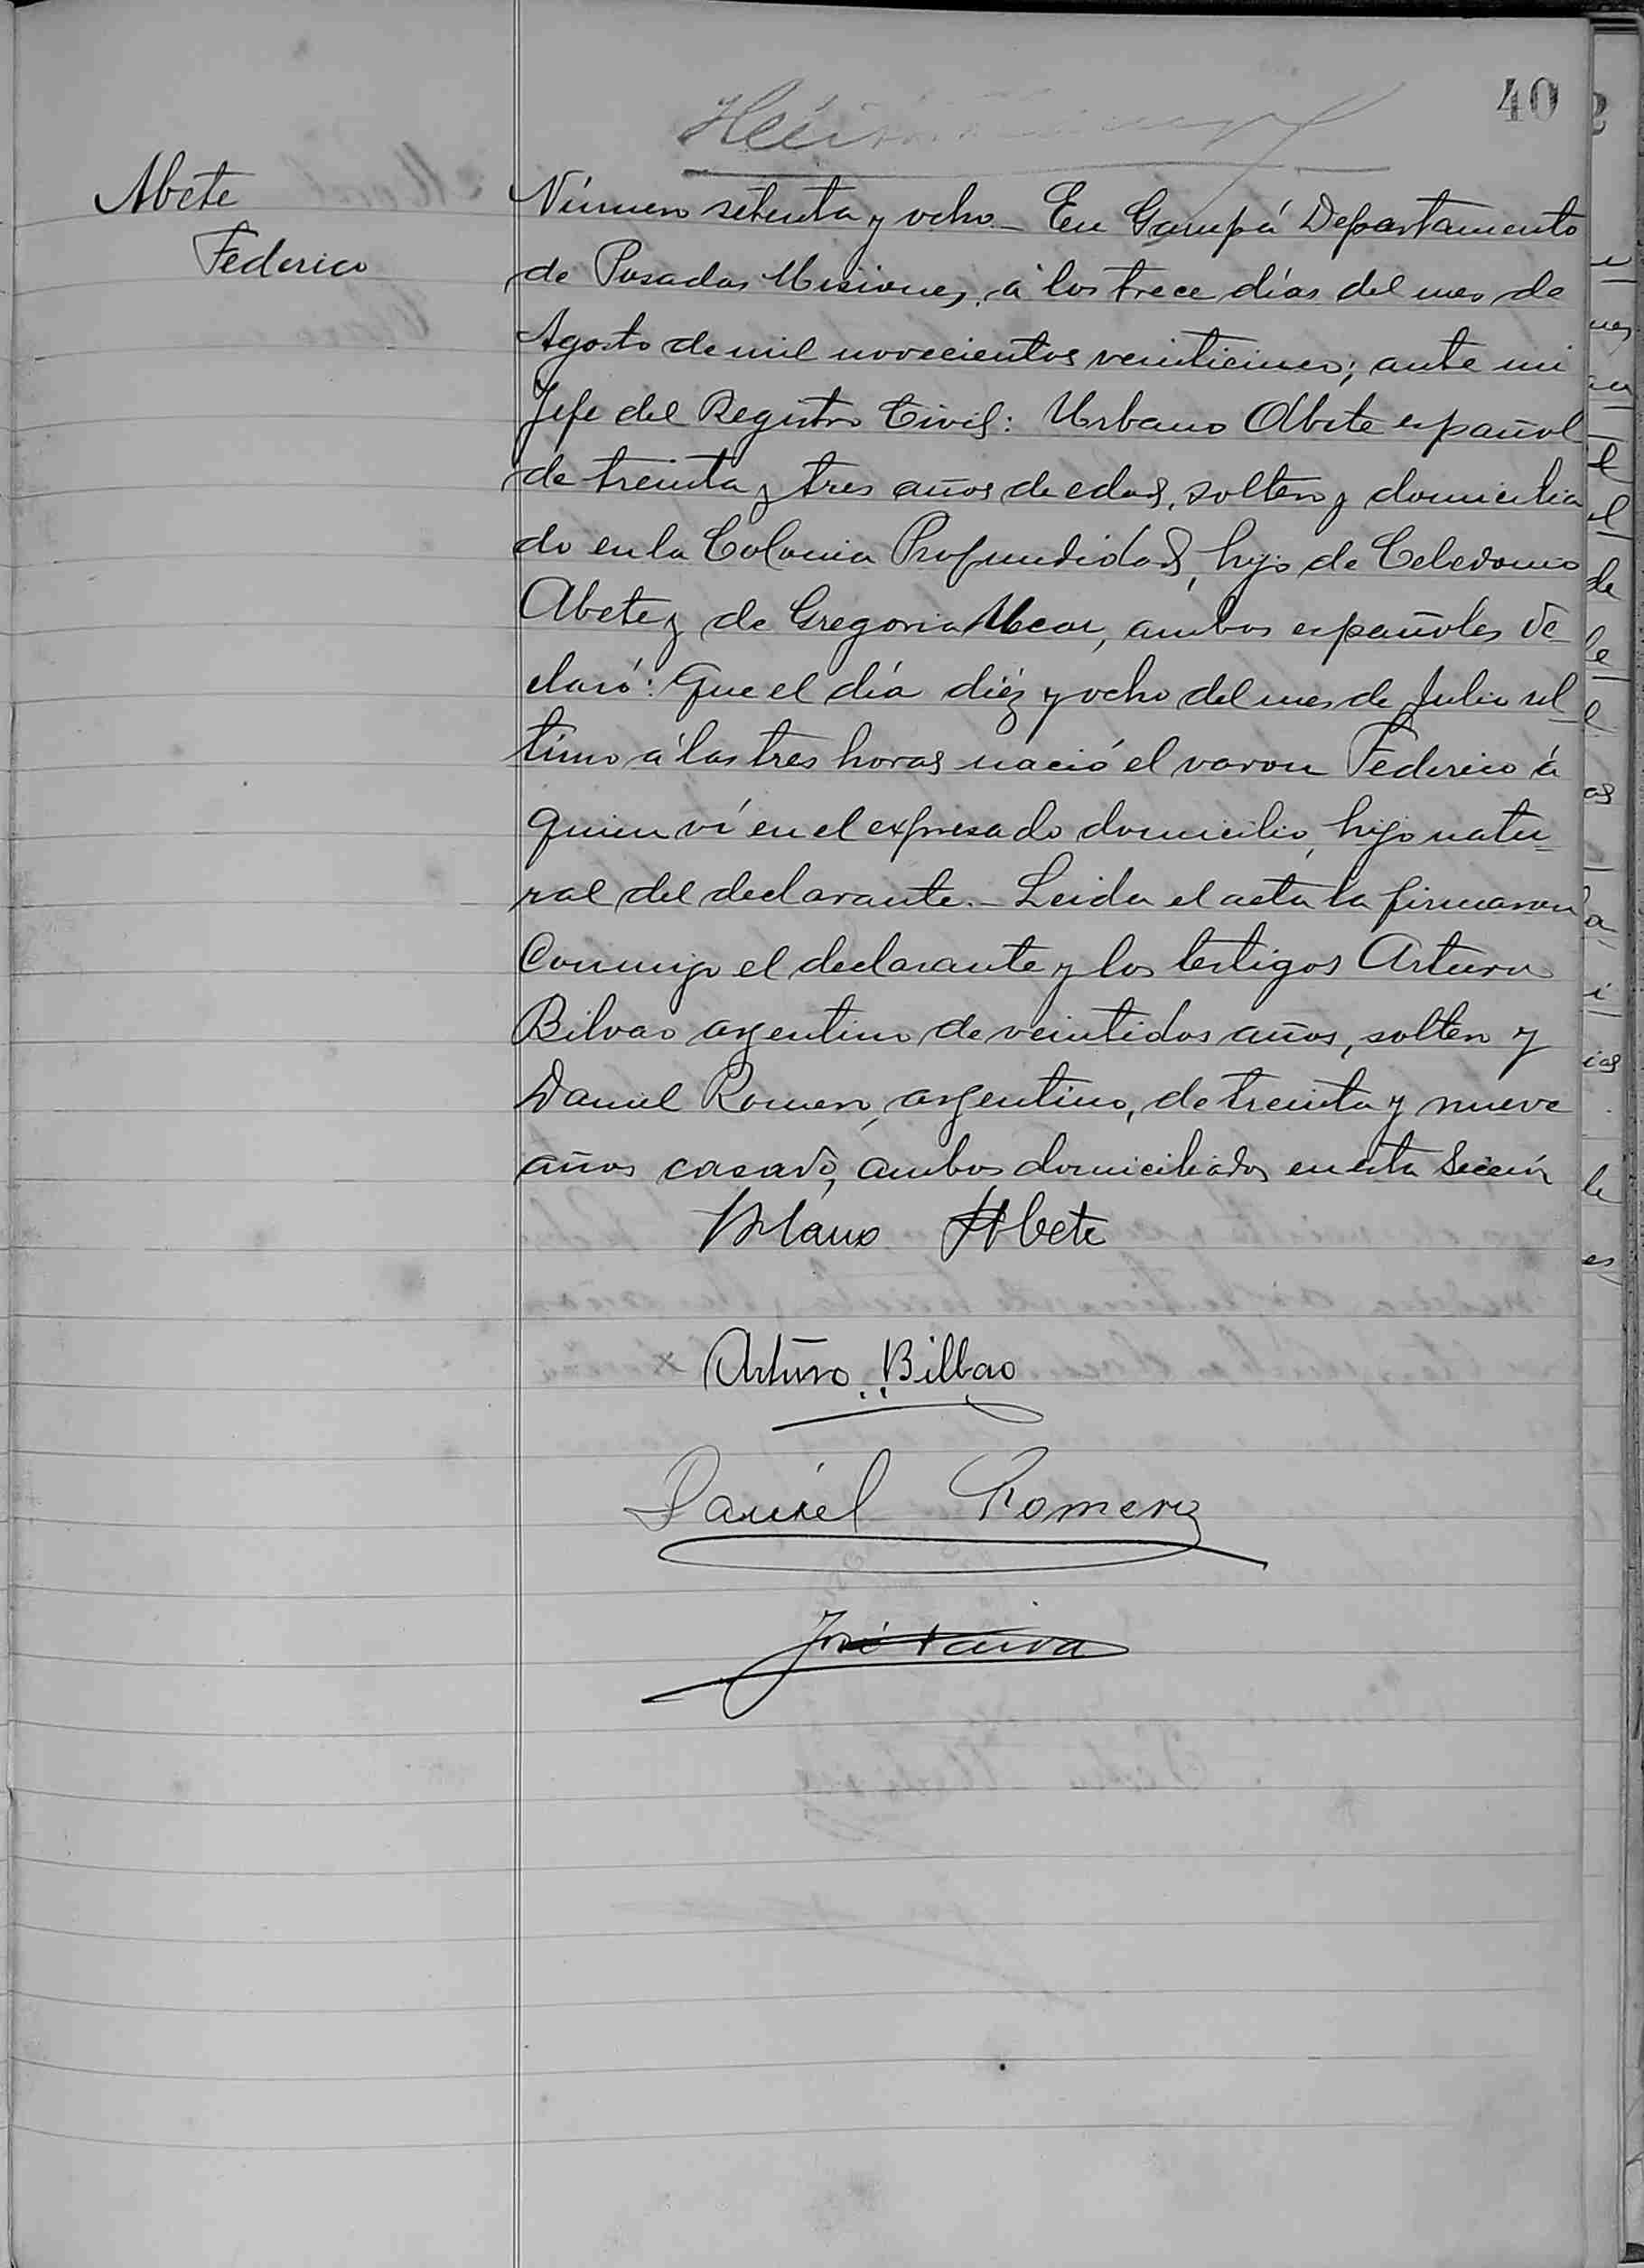 40
Abete
Federico
Número setenta y ocho.- En Garupá Departamento
de Posadas Misiones, á los trece días del mes de
Agosto de mil novecientos veinticinco; ante mi
Jefe del Registro Civil: Urbano Abete español
de treinta y tres años de edad, soltero y domicilia
do en la Colonia Profundidad, hijo de Celedonio
Abete y de Gregoria, ambos españoles de
claró: Que el día diéz y ocho del mes de Julio úl-
timo á las tres horas nació el varon Federico á
quien ví en el expresado domicilio, hijo natu-
ral del declarante.- Leida el acta la firmaron
conmigo el declarante y los testigos Arturo
Bilvao argentino de veintidos años, soltero y
Daniel Romero, argentino, de treinta y nueve
años casado, ambos domiciliados en esta Sección
Urbano Abete
Arturo Bilbao
Daniel Romero
José Paiva